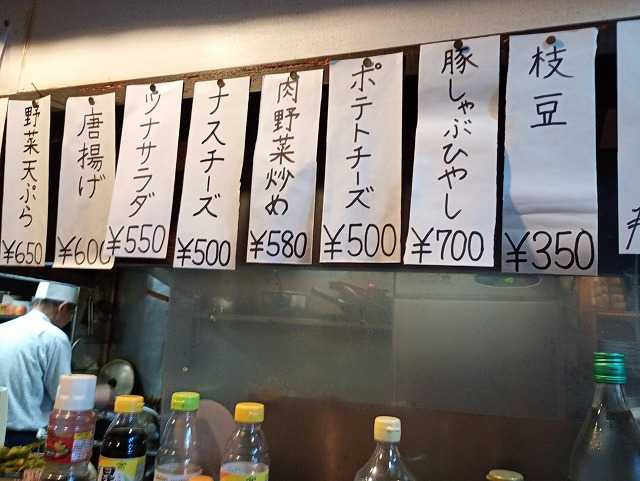 枝豆
¥350
豚しゃぶひやし
¥700
ポテトチーズ
¥500
肉野菜炒め
¥580
ナスチーズ
¥500
ツナサラダ
¥550
唐揚げ
¥600
野菜天ぷら
¥650